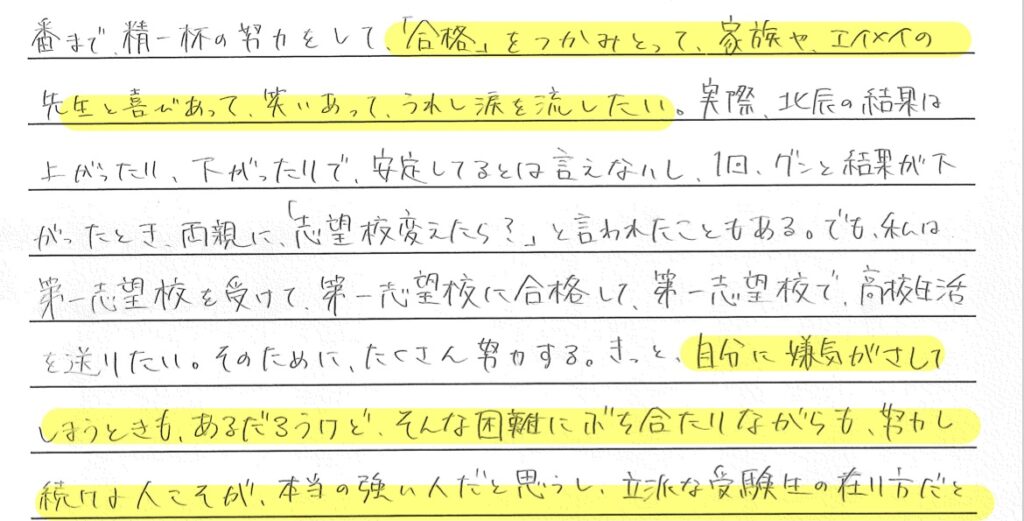 番まで、精一杯の努力をして、「合格」をつかみとって、家族や、エイメイの
先生と喜びあって、笑いあって、うれし涙を流したい。実際、北辰の結果は
上がったり、下がったりで、安定してるとは言えないし、1回、グンと結果が下
がったとき、両親に、「志望校変えたら?」と言われたこともある。でも、私は
第一志望校を受けて、第一志望校に合格して、第一志望校で、高校生活
を送りたい。そのために、たくさん努力する。きっと、自分に嫌気がさして
しまうときも、あるだろうけど、そんな困難にぶち合たりながらも、努力し
続ける人こそが、本当の強い人だと思うし、立派な受験生の在り方だと